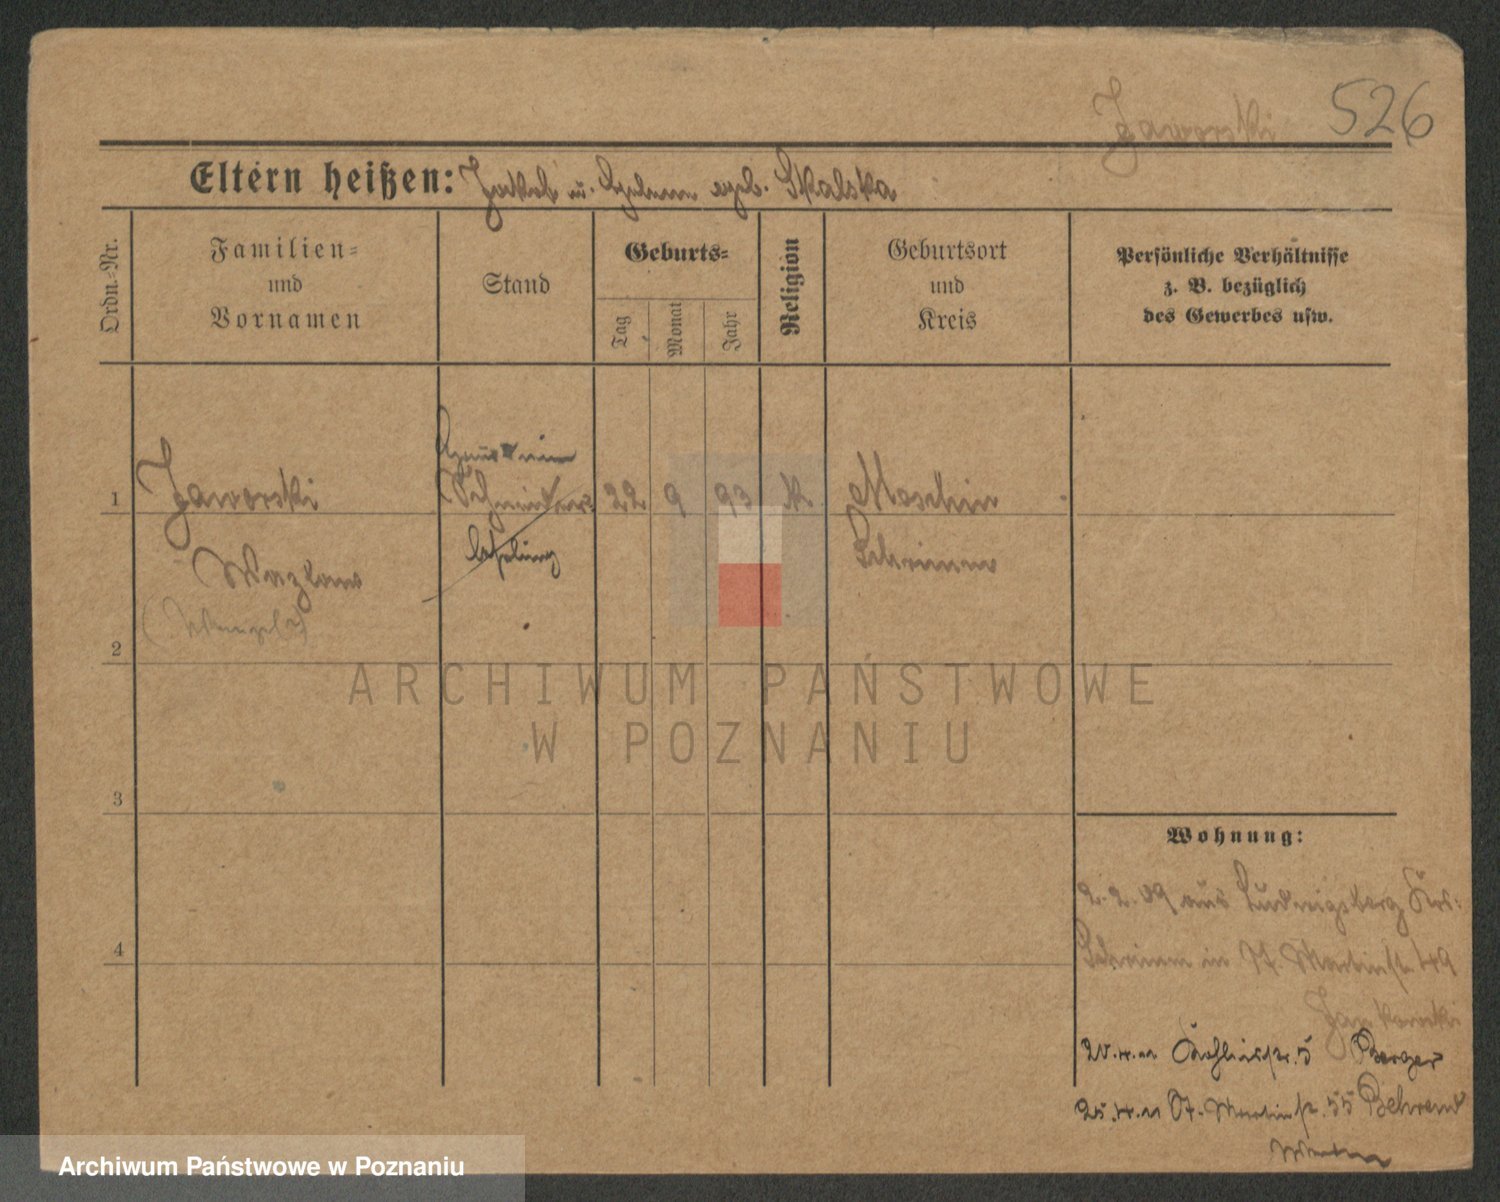 Jaworski 526
Eltern heißen: Jakob u. geb. Skalska
Ordn.-Nr.
Familien-
und
Vornamen
Stand
Geburts-
Tag
Monat
Jahr
Religion
Geburtsort
und
Kreis
Persönliche Verhältnisse
z. B. bezüglich
des Gewerbes usw.
1
Jaworski
Schneider-
22 9 93 k.
Moschin
lehrling
Wazlaw
Schrimm
(Wenzel)
2
ARCHIWUM PAŃSTWOWE
W POZNANIU
3
Wohnung:
2.2.09 aus Ludwigsberg Krs.
4
Schrimm in St. Martinstr. 49
Jankowski
20.4.11 5 Berger
25.4.11 St. Martinstr. 55 Behrend
Archiwum Państwowe w Poznaniu